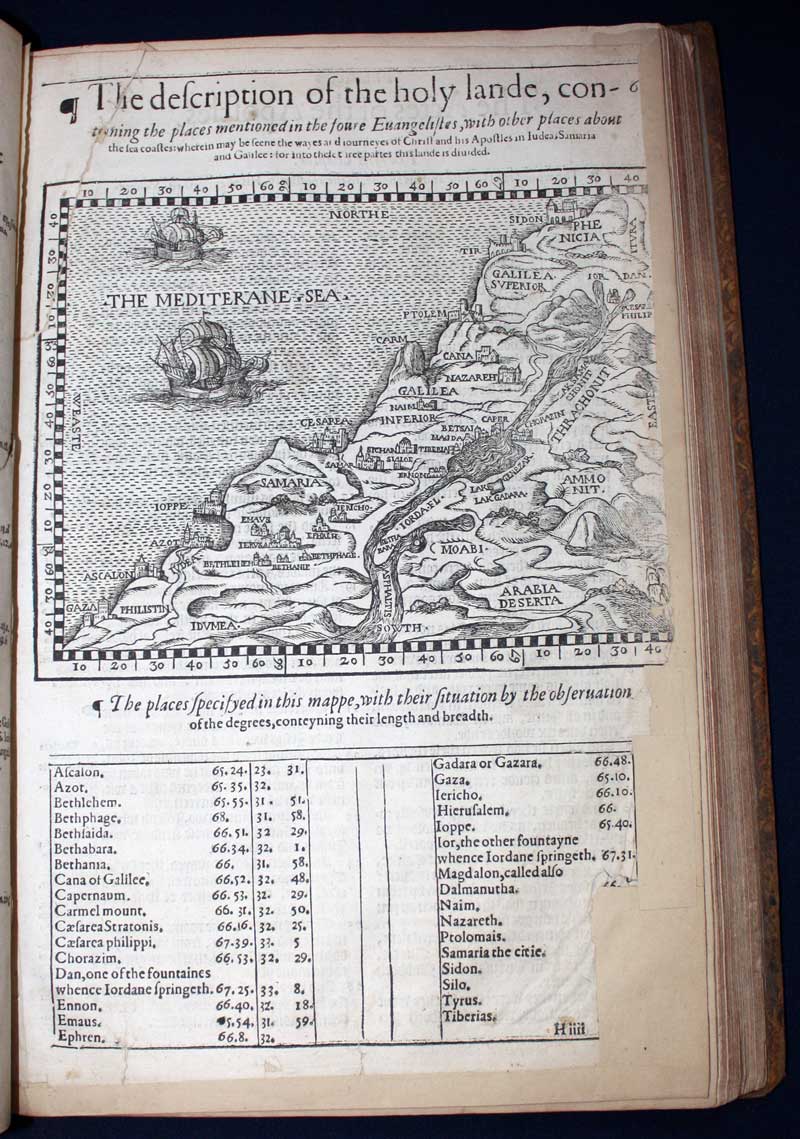 ¶ The deſcription of the holy lande, con-
tayning the places mentioned in the foure Euangeliſtes, with other places about
the ſea coaſtes: wherein may be ſeene the wayes and iourneyes of Chriſt and his Apoſtles in Iudea, Samaria
and Galilee: for into theſe three partes this lande is diuided.
10 20 30 40 50 60 10 20 30 40 50 60 10 20 30 40
NORTHE
SIDON
PHE
NICIA
ITVRA
TIR
GALILEA
SVPERIOR
IOR DAN
PHILIP
THE MEDITERANE SEA
PTOLEM
CARM
CANA
NAZARETH
GALILEA
NAIM
INFERIOR
THRACHONIT
EASTE
WEASTE
CESAREA
BETSAI
CAPER
CHORAZIN
MAGDA
SICHAR
TIBERIA
SAMAR
SILOE
ENNON
SAMARIA
LAKE
LAK.GADARA
AMMO
NIT.
IOPPE
IERICHO
IORDA EL
EMAVS
EPHREM
AZOT
IERVSA
BETHA
BARA
MOABI
IVDEA
BETHLEHEM
BETHPHAGE
BETHANIE
ASCALON
ASPHALTIS
ARABIA
DESERTA
GAZA
PHILISTIN
IDVMEA
SOWTH
10 20 30 40 50 60 10 20 30 40 50 60 10 20 30 40
¶ The places ſpecifyed in this mappe, with their ſituation by the obſeruation
of the degrees, conteyning their length and breadth.
Aſcalon. 65.24. 23. 31.
Azot. 65.35. 32.
Bethlehem. 65.55. 31. 51.
Bethphage. 68. 31. 58.
Bethſaida. 66.51. 32 29.
Bethabara. 66.34. 32. 1.
Bethania. 66. 31. 58.
Cana of Galilee. 66.52. 32. 48.
Capernaum. 66.53. 32. 29.
Carmel mount. 66.31. 32. 50.
Cæſarea Stratonis. 66.16. 32. 25.
Cæſarea philippi. 67.39. 33. 5
Chorazim. 66.53. 32. 29.
Dan, one of the fountaines
whence Iordane ſpringeth. 67.25. 33. 8.
Ennon. 66.40. 32. 18.
Emaus. 5.54. 31. 59.
Ephren. 66.8. 32.
Gadara or Gazara. 66.48.
Gaza. 65.10.
Iericho. 66.10.
Hieruſalem. 66.
Ioppe. 65.40.
Ior, the other fountayne
whence Iordane ſpringeth. 67.31.
Magdalon, called alſo
Dalmanutha.
Naim.
Nazareth.
Ptolomais.
Samaria the citie.
Sidon.
Silo.
Tyrus.
Tiberias.
H iiii